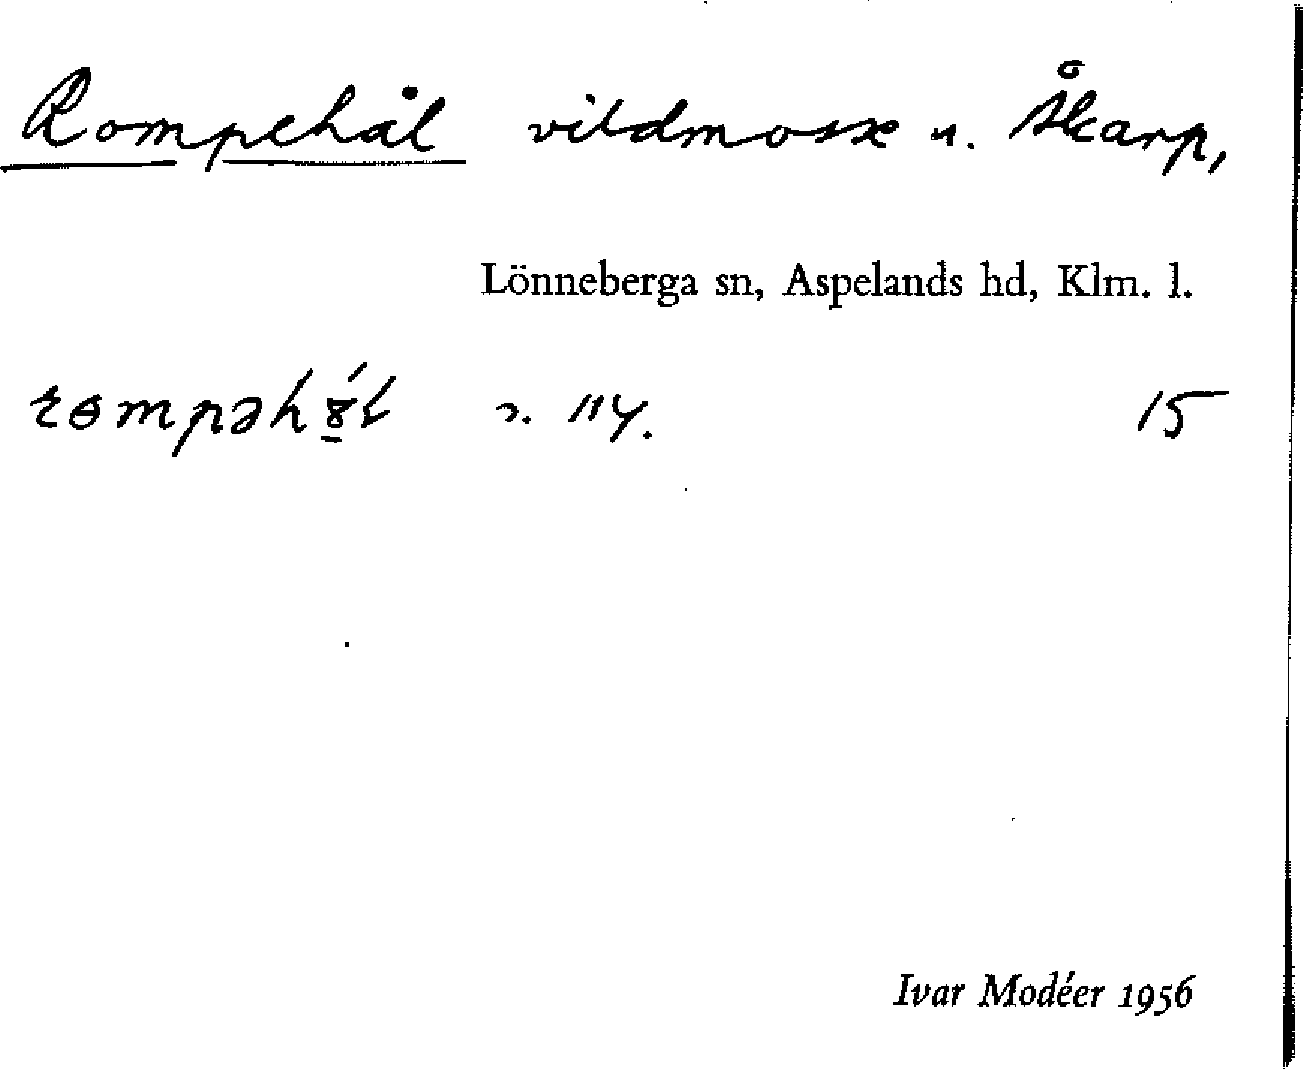 Rompehål vildmosse u. Åkarp,
Lönneberga sn, Aspelands hd, Klm. l.
rɵmpəh
15
Ivar Modéer 1956